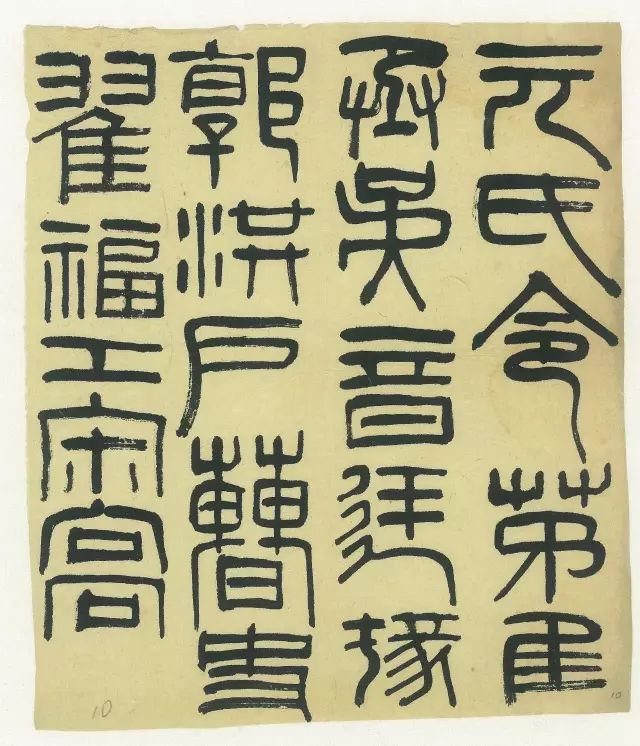 元氏令茅厓
丞吳音廷掾
郭洪戶曹史
翟福工宋高
10
10